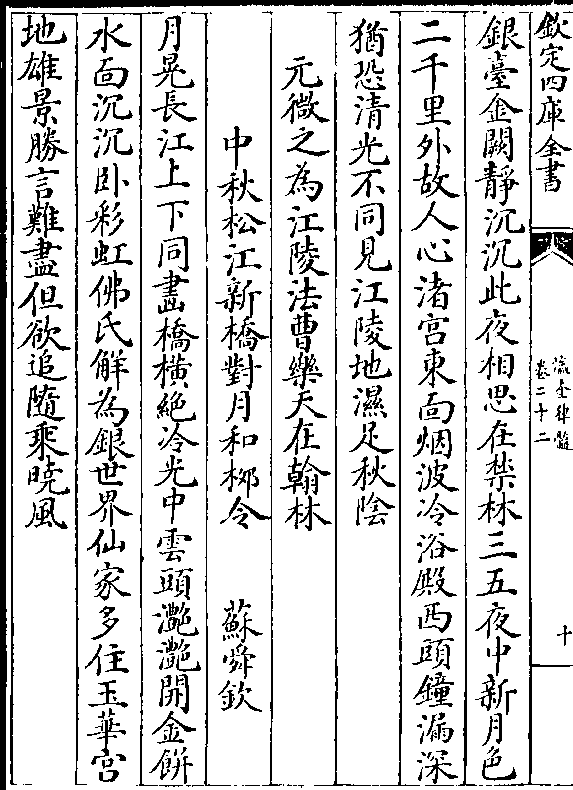 欽定四庫全書
瀛奎律髓
卷二十二
十
銀臺金闕靜沉沉此夜相思在禁林三五夜中新月色
二千里外故人心渚宮東面烟波冷浴殿西頭鐘漏深
猶恐清光不同見江陵地濕足秋陰
元微之為江陵法曹樂天在翰林
中秋松江新橋對月和桞令　蘇舜欽
月晃長江上下同畫橋橫絶冷光中雲頭灧灧開金餅
水面沉沉卧彩虹佛氏解為銀世界仙家多住玉華宮
地雄景勝言難盡但欲追隨乘曉風